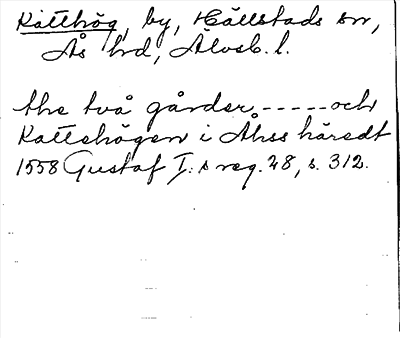 Kåtthög, by, Hällstads sn,
Ås hd, Älvsb. l.
the två gårder ----- och
Kattehögen i Åhss häredt
1558 Gustaf I:s reg. 28, s. 312.